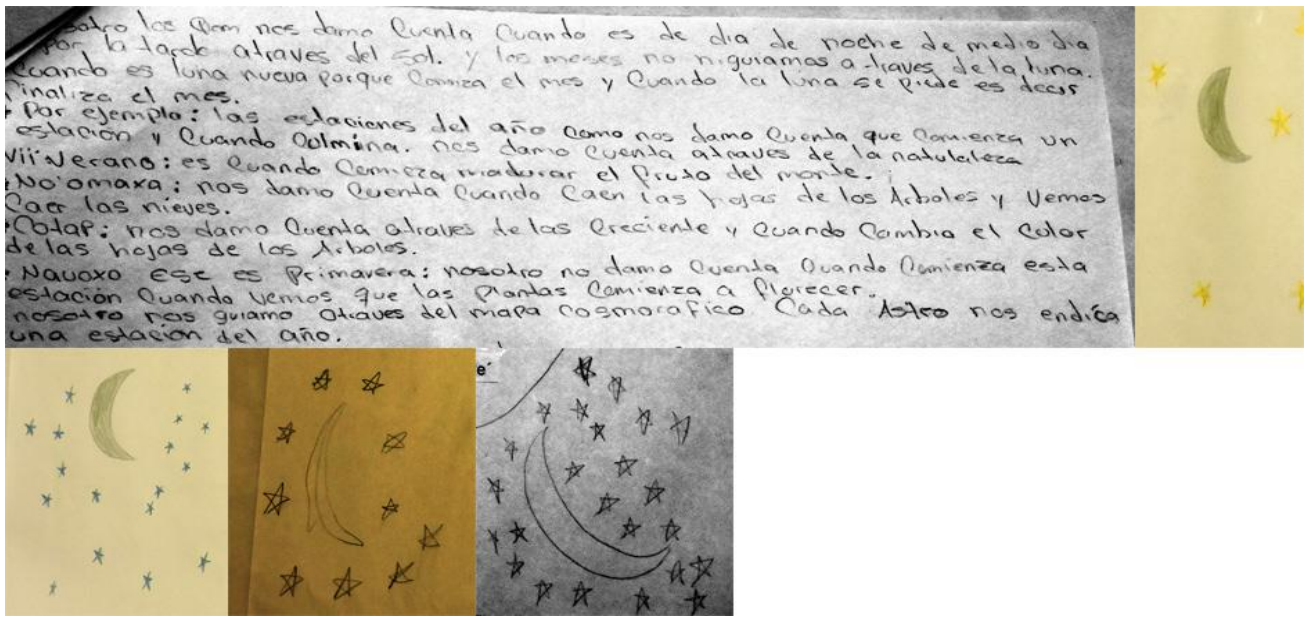 nos damo Cuenta Cuando es de dia de noche de medio dia
Por la tarde atraves del Sol. y los meses no niguiamos a traves de la luna.
Cuando es luna nueva porque Comiza el mes y Cuando la luna se piede es decir
Finaliza el mes.
• Por ejemplo: las estaciones del año Como nos damo Cuenta que Comienza un
estación y Cuando Culmina. nos damo Cuenta atraves de la natulaleza
Vii'Verano: es Cuando Comieza madurar el Fruto del monte.
• No'omaxa: nos damo Cuenta Cuando Caen las hojas de los Arboles y Vemos
Caer las nieves.
• Cotap: nos damo Cuenta atraves de las Creciente y Cuando Cambia el Color
de las hojas de los Arboles.
• Navoxo ese es Primavera: nosotro no damo Cuenta Cuando Comienza esta
estación Cuando vemos que las Plantas Comienza a florecer.
nosotro nos guiamo atraves del mapa cosmorafico Cada Astro nos endica
una estación del año.
e´